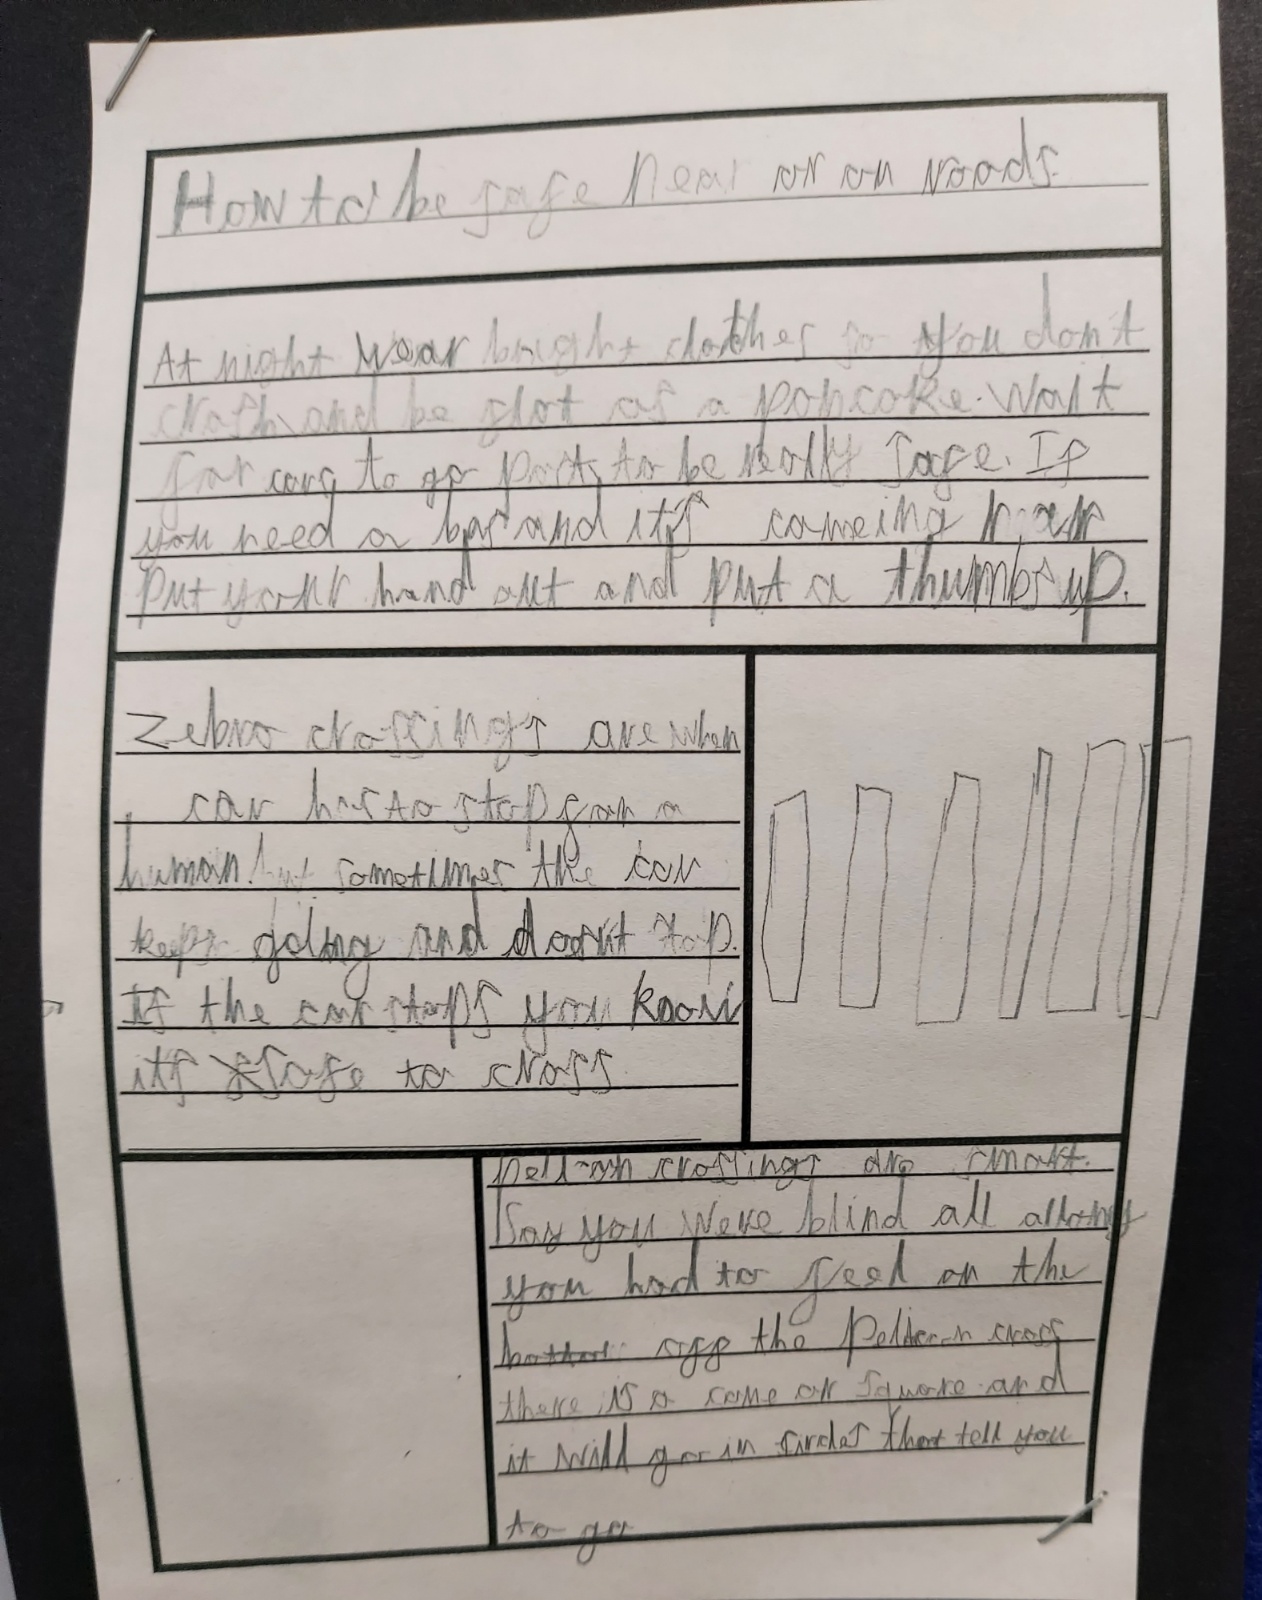 How to be safe near or on roads.
At night wear bright clothes so you don't
crash and be flat as a pancake. Wait
for cars to go past, to be really safe. If
you need a bus and it's comeing near
put your hand out and put a thumbs up.
Zebra crossings are when
car has to stop for a
human! but sometimes the car
keeps going and doesn't stop.
If the car stops you know
it's safe to cross
crossings are smart.
Say you were blind all allong
you had to feel on the
bottom off the cross
there is a cone or square and
it will go in circles that tell you
to go